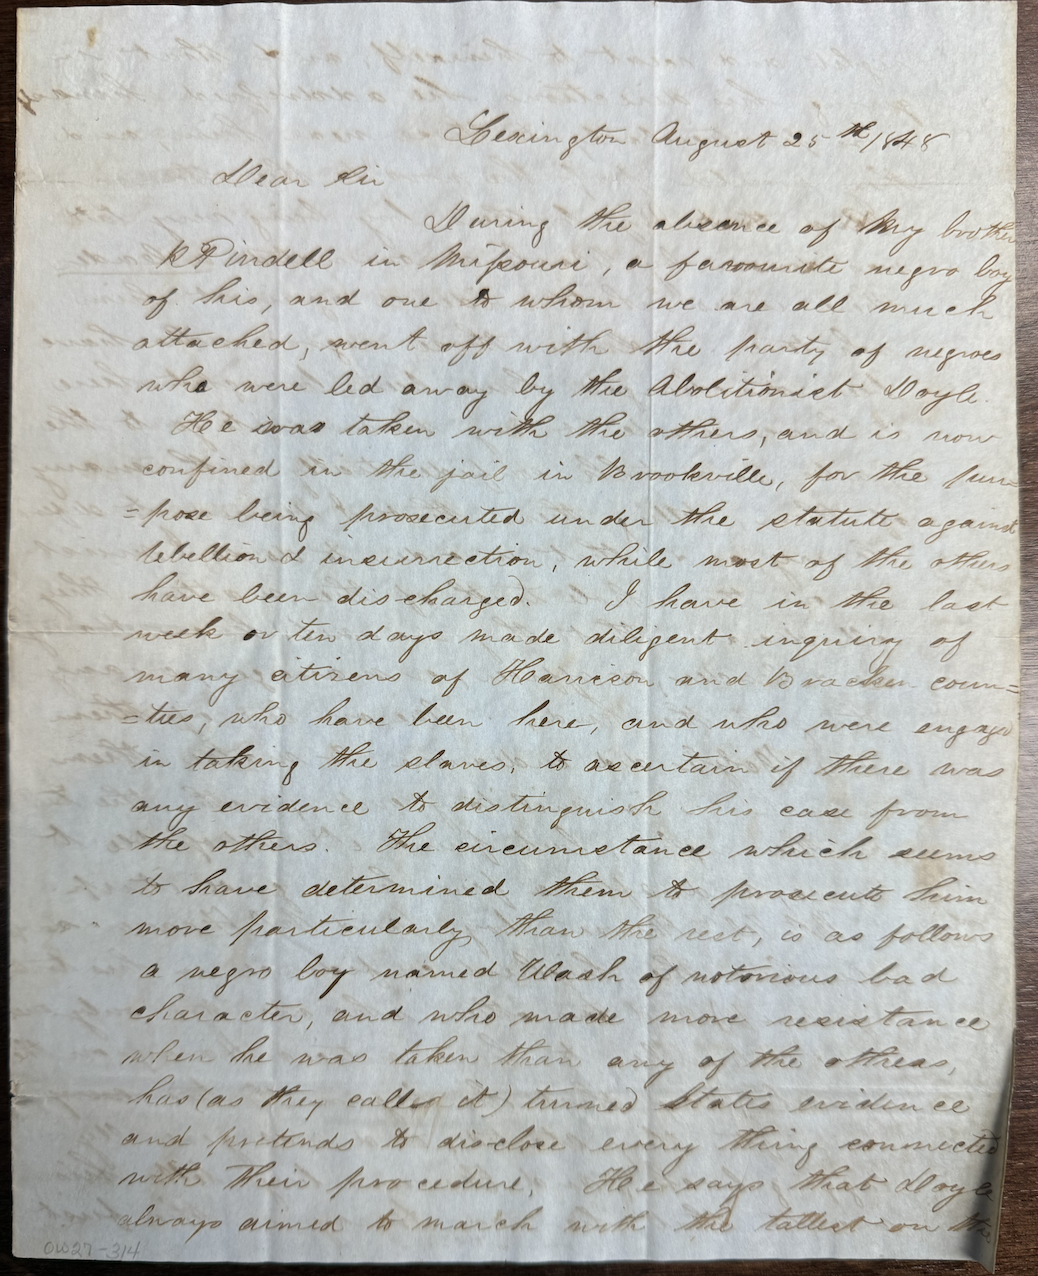 Lexington August 25th 1848
Dear Sir
During the absence of My brother
R Pindell in Missouri, a favourite negro boy
of his, and one to whom we are all much
attached, went off with the party of negroes
who were led away by the Abolitionist Doyle.
He was taken with the others, and is now
confined in the jail in Brookville, for the pur=
=pose being prosecuted under the statute against
rebellion & insurrection, while most of the others
have been discharged. I have in the last
week or ten days made diligent inquiry of
many citizens of Harrison and Bracken coun=
=ties, who have been here, and who were engaged
in taking the slaves, to ascertain if there was
any evidence to distinguish his case from
the others. The circumstance which seems
to have determined them to prosecute him
more particularly than the rest, is as follows
a negro boy named Wash of notorious bad
character, and who made more resistance
when he was taken than any of the others,
has (as they called it) turned States evidence
and pretends to disclose every thing connected
with their procedure. He says that Doyle
always aimed to march with the tallest on the
OW27-314